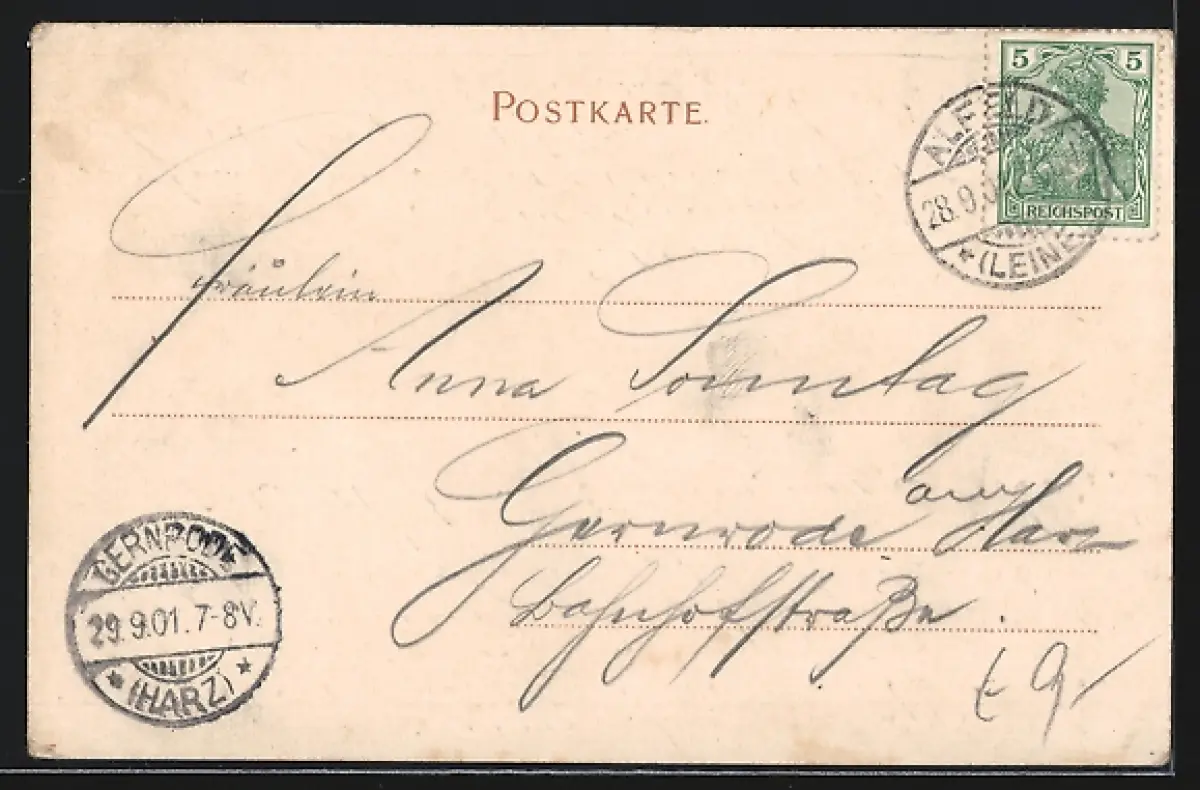 POSTKARTE.
5 5
REICHSPOST
ALFELD
28.9.0
* (LEINE
Fräulein
Anna Sonntag
Gernrode am Harz
Bahnhofstraße
GERNRODE
29.9.01. 7-8V.
* (HARZ) *